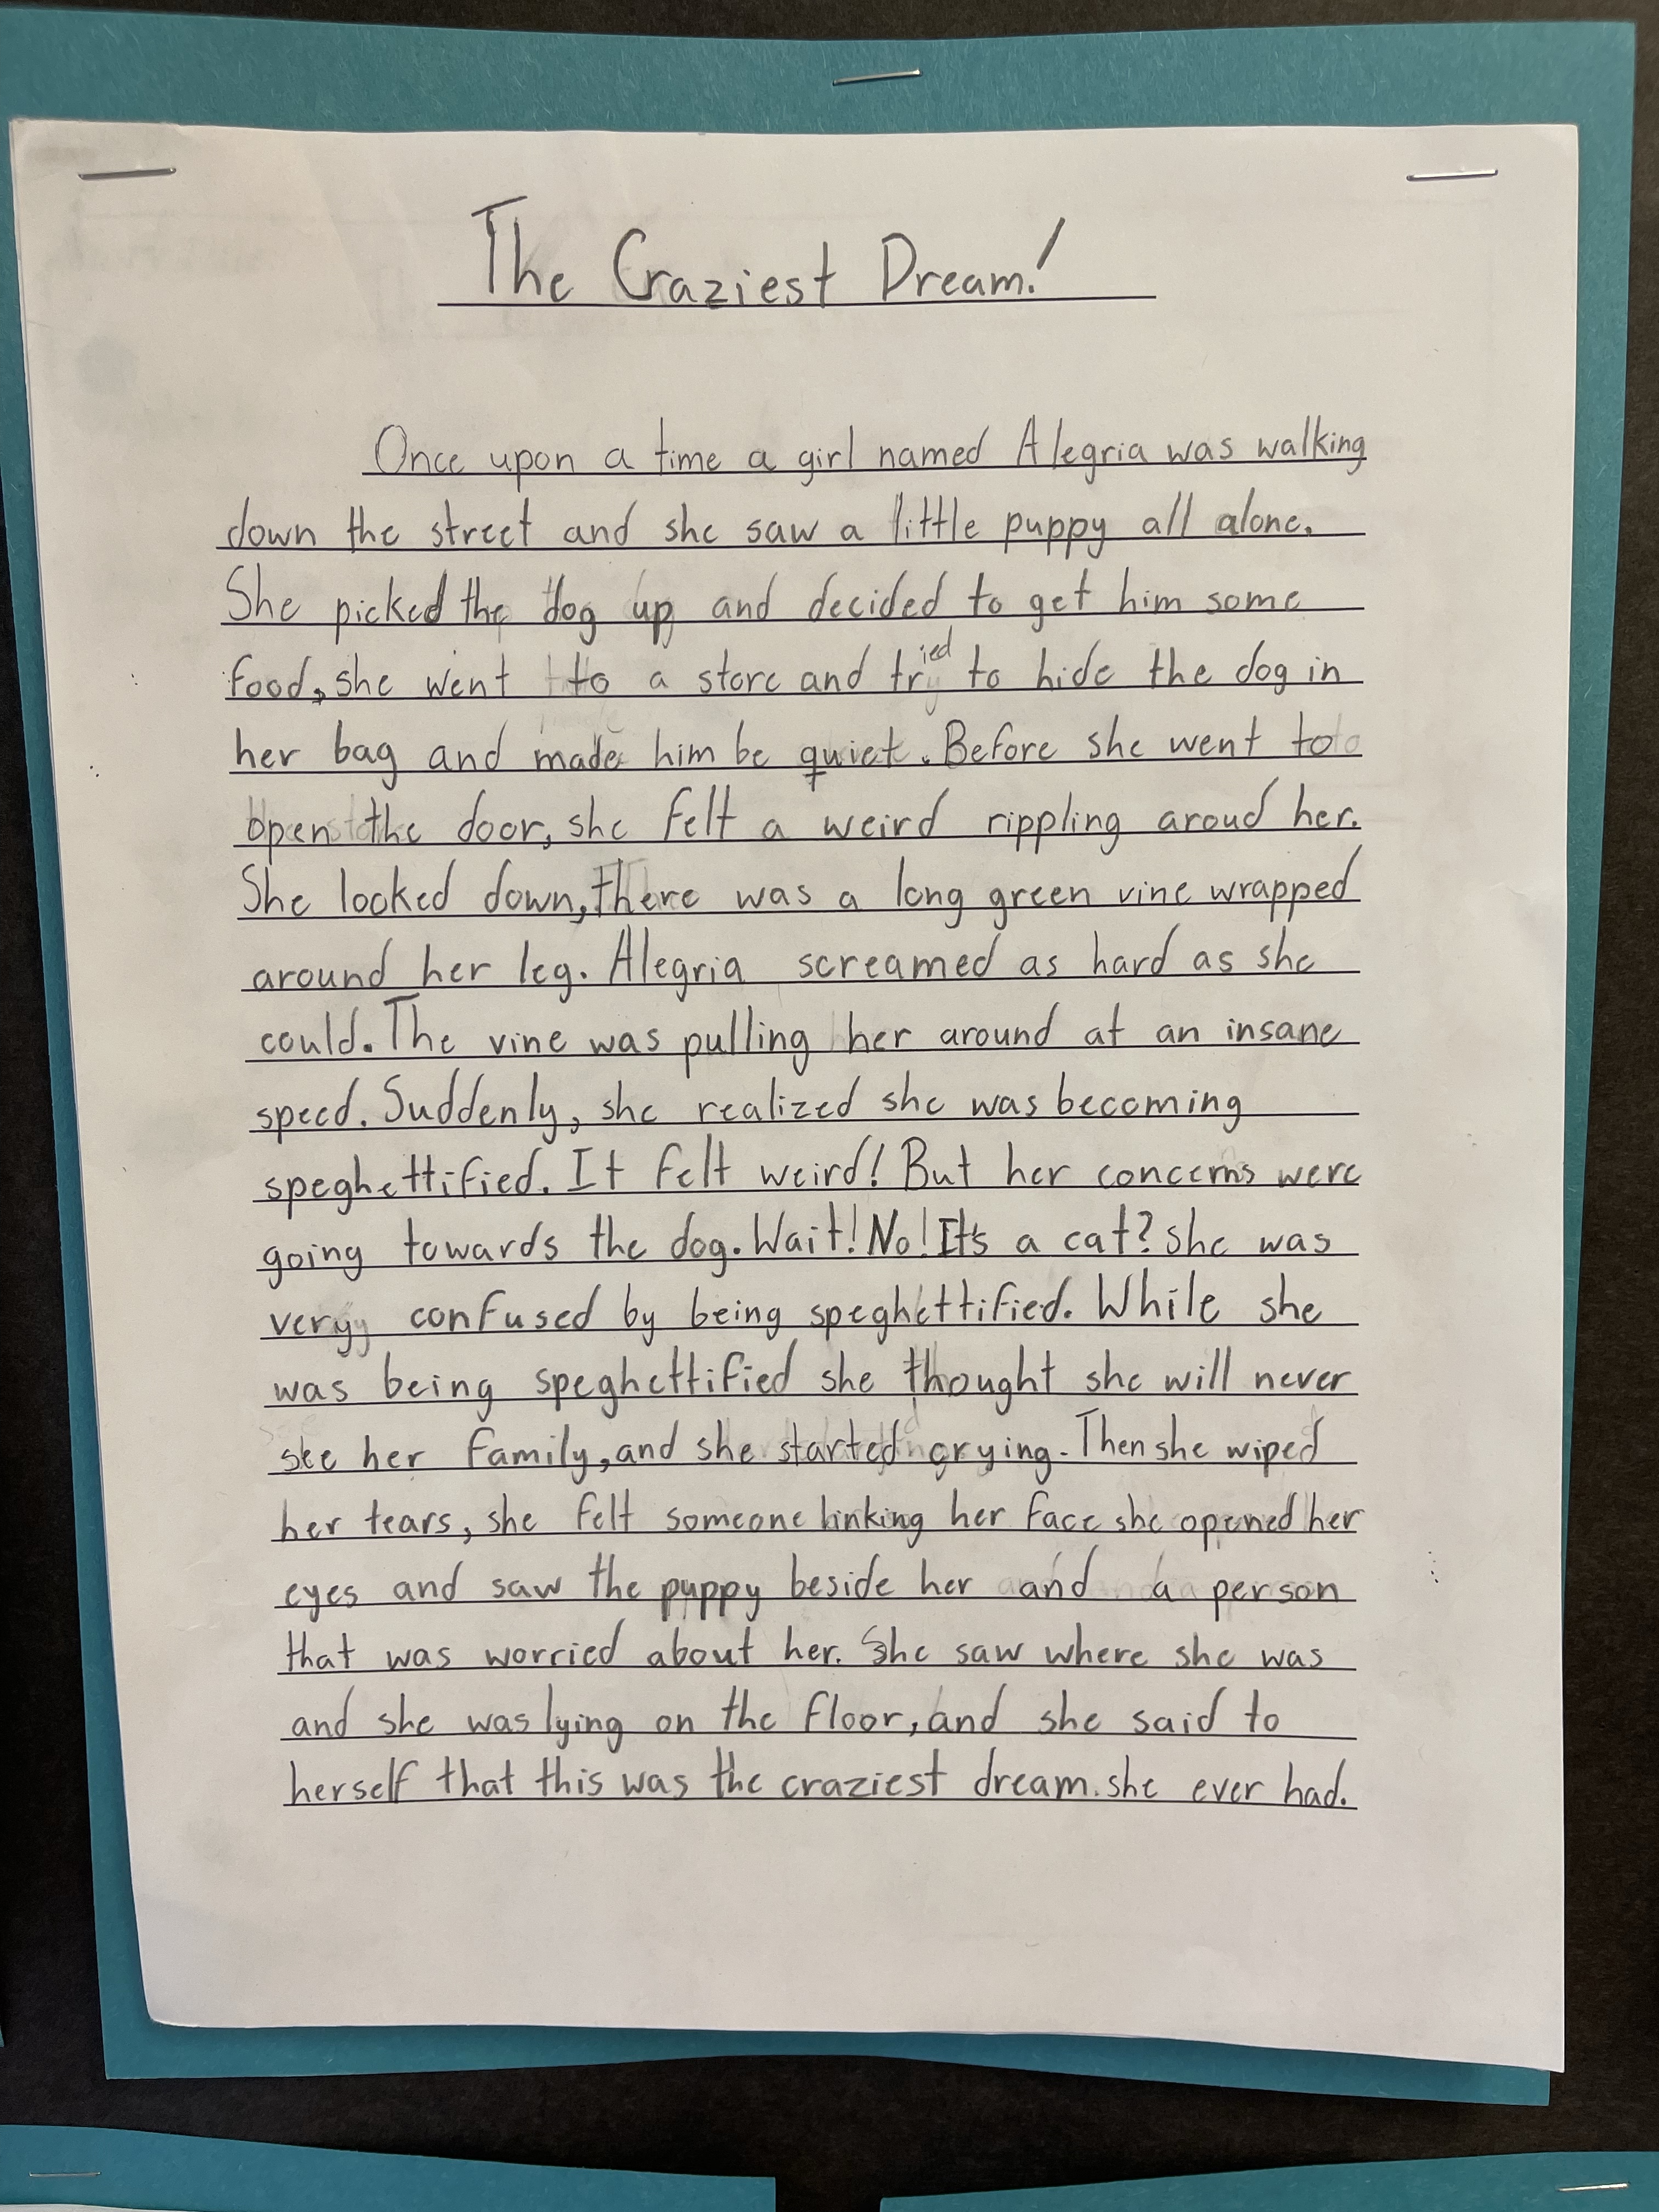 The Craziest Dream!
Once upon a time a girl named Alegria was walking
down the street and she saw a little puppy all alone.
She picked the dog up and decided to get him some
food, she went to a store and tried to hide the dog in
her bag and made him be quiet. Before she went to
open the door, she felt a weird rippling aroud her.
She looked down, there was a long green vine wrapped
around her leg. Alegria screamed as hard as she
could. The vine was pulling her around at an insane
speed. Suddenly, she realized she was becoming
speghettified. It felt weird! But her concerns were
going towards the dog. Wait! No! It's a cat? She was
very confused by being speghettified. While she
was being speghettified she thought she will never
see her family, and she started crying. Then she wiped
her tears, she felt someone linking her face she opened her
eyes and saw the puppy beside her and a person
that was worried about her. She saw where she was
and she was lying on the floor, and she said to
herself that this was the craziest dream. she ever had.